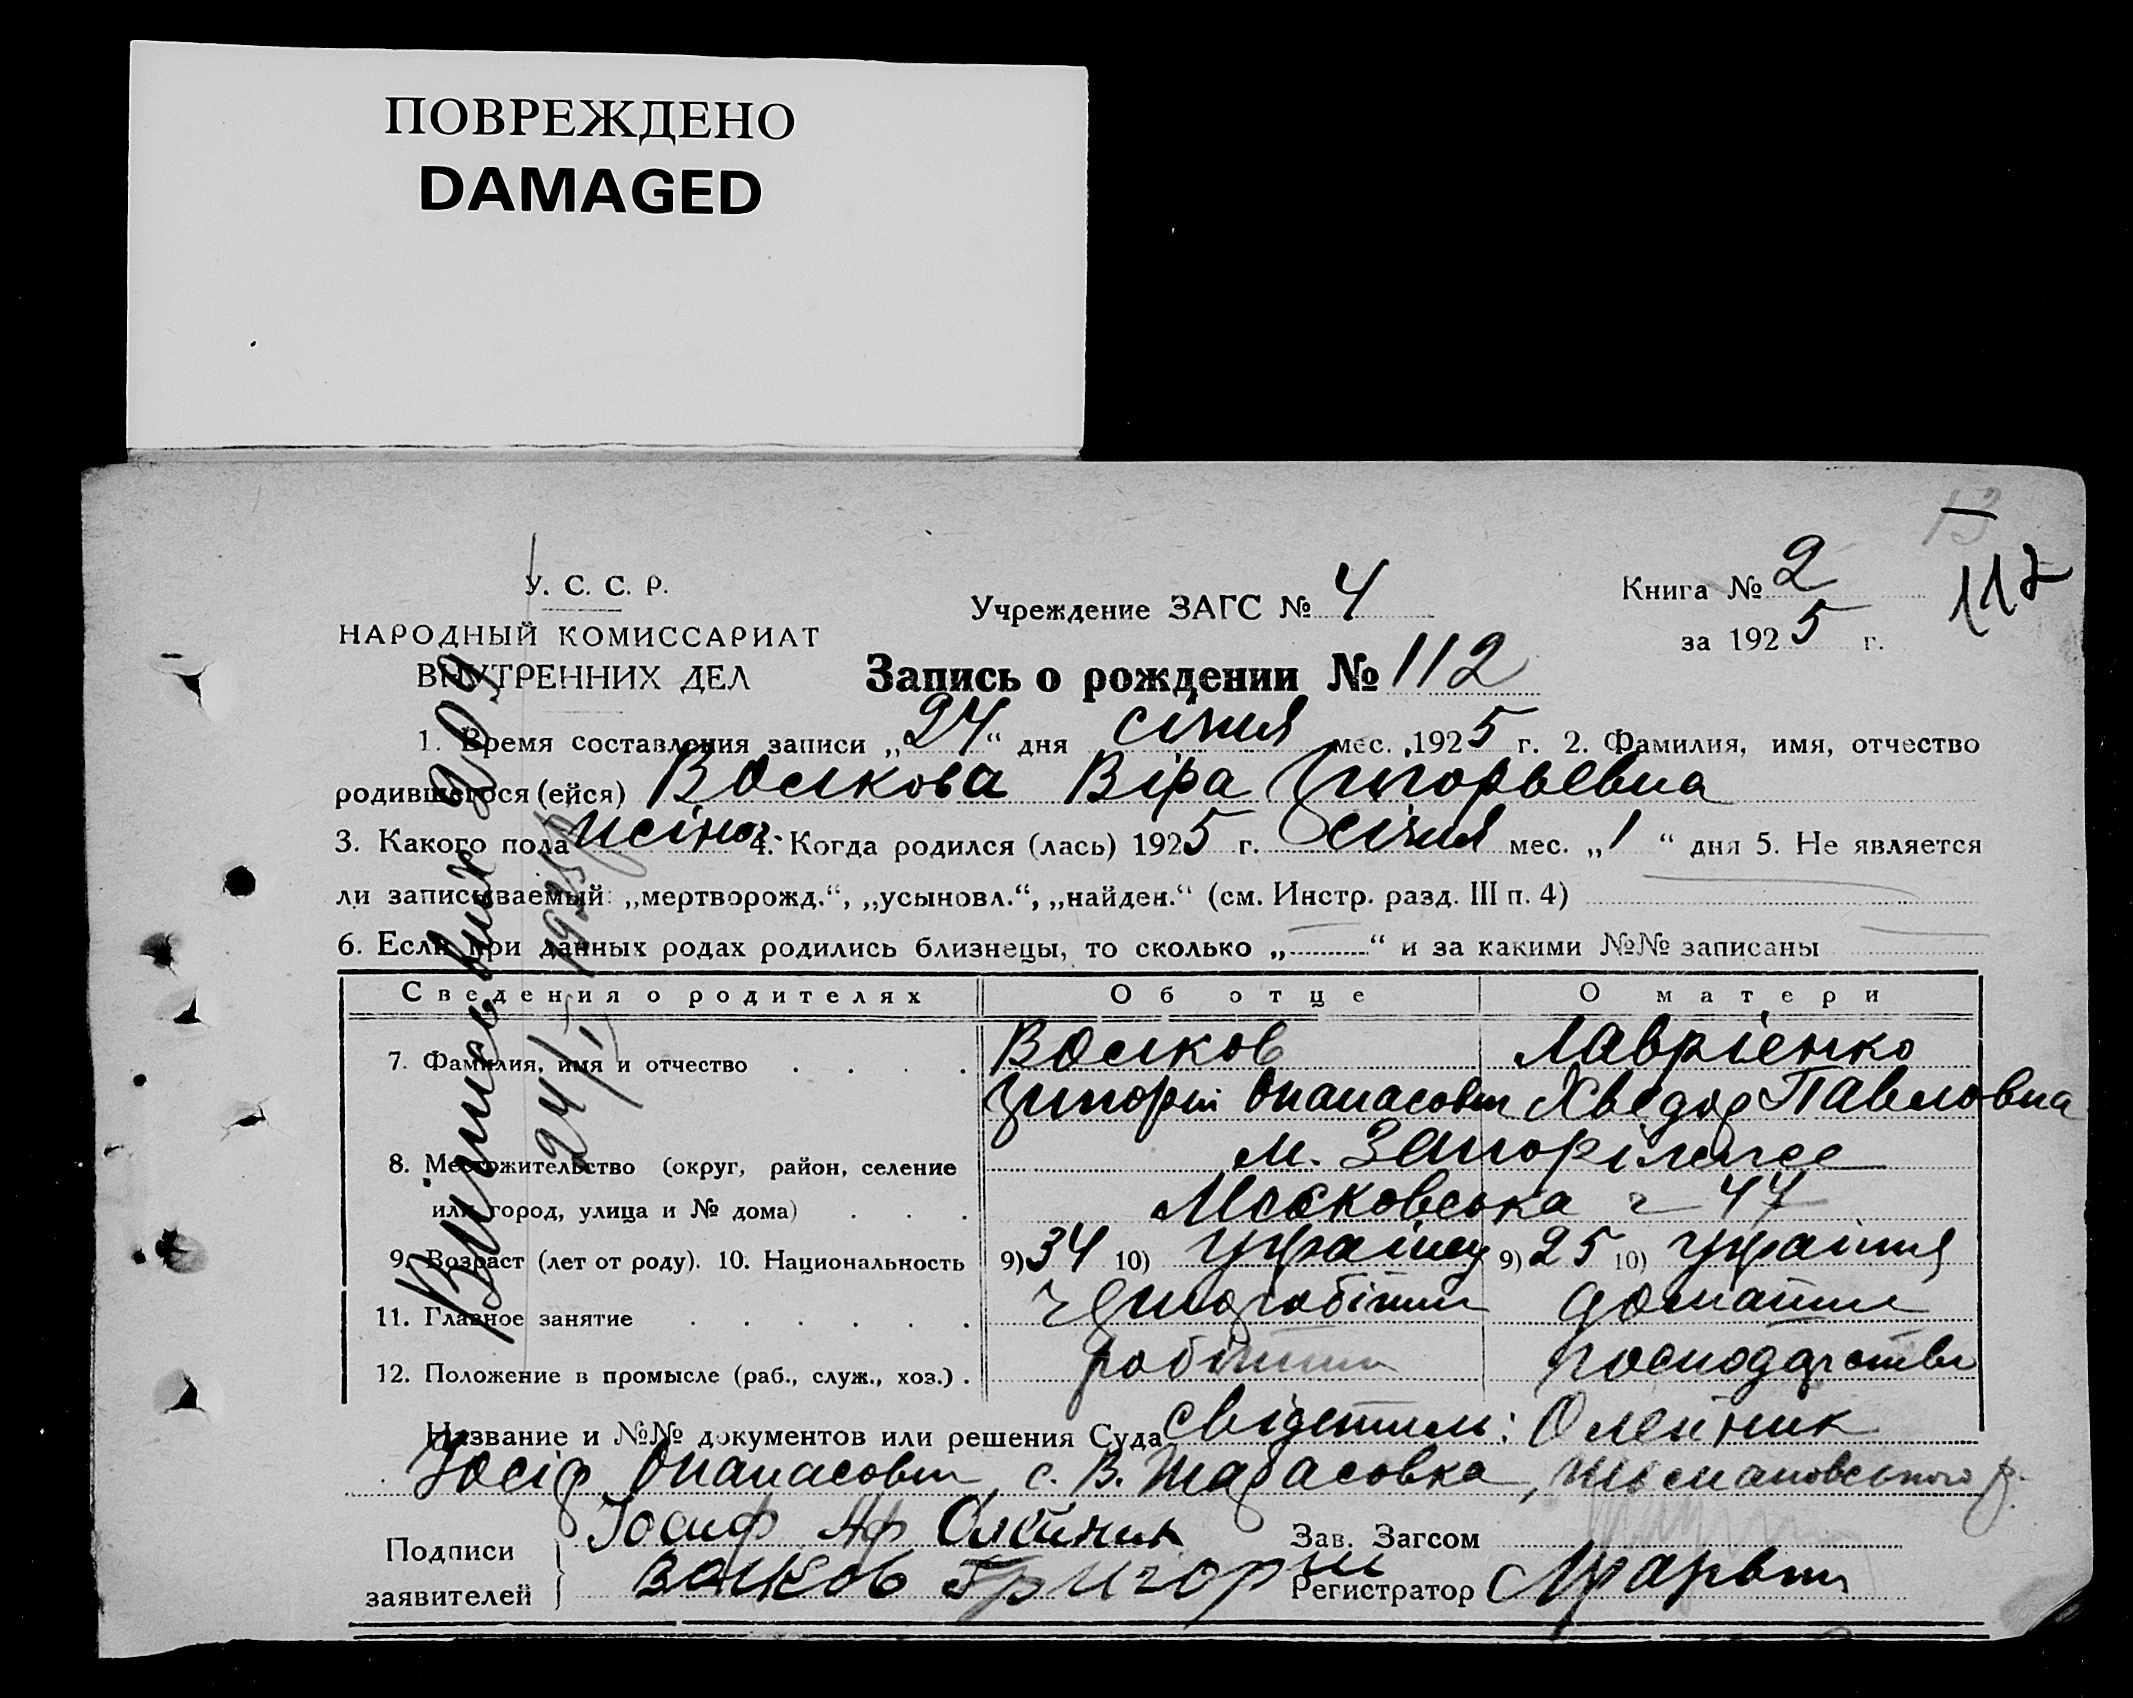 ПОВРЕЖДЕНО
DAMAGED
13
112
У. С. С. Р.
НАРОДНЫЙ КОМИССАРИАТ
ВНУТРЕННИХ ДЕЛ
Учреждение ЗАГС № 4
Книга № 2
за 1925 г.
Запись о рождении № 112
1. Время составления записи „24“ дня січня мес. 1925 г. 2. Фамилия, имя, отчество
родившегося (ейся) Волкова Віра Григорьевна
3. Какого пола жіноч. 4. Когда родился (лась) 1925 г. січня мес. „1“ дня 5. Не является
ли записываемый: „мертворожд.“, „усыновл.“, „найден.“ (см. Инстр. разд. III п. 4)
6. Если при данных родах родились близнецы, то сколько „ “ и за какими №№ записаны
Сведения о родителях Об отце О матери
7. Фамилия, имя и отчество Волков Лавріенко
Григорій Опанасович Хведора Павловна
8. Местожительство (округ, район, селение м. Запоріжжє
или город, улица и № дома) Московська ч 47
9. Возраст (лет от роду). 10. Национальность 9) 34 10) українец 9) 25 10) україния
11. Главное занятие домашне
12. Положение в промысле (раб., служ., хоз.) робітник господарство
Название и №№ документов или решения Суда Свідетель: Олейник
Йосіф Опанасович, с. В. Тарасовка,
Подписи
заявителей
Иосиф Аф Олейник
Волков Григорий
Зав. Загсом
Регистратор
Виписвид
24/I 1925 р